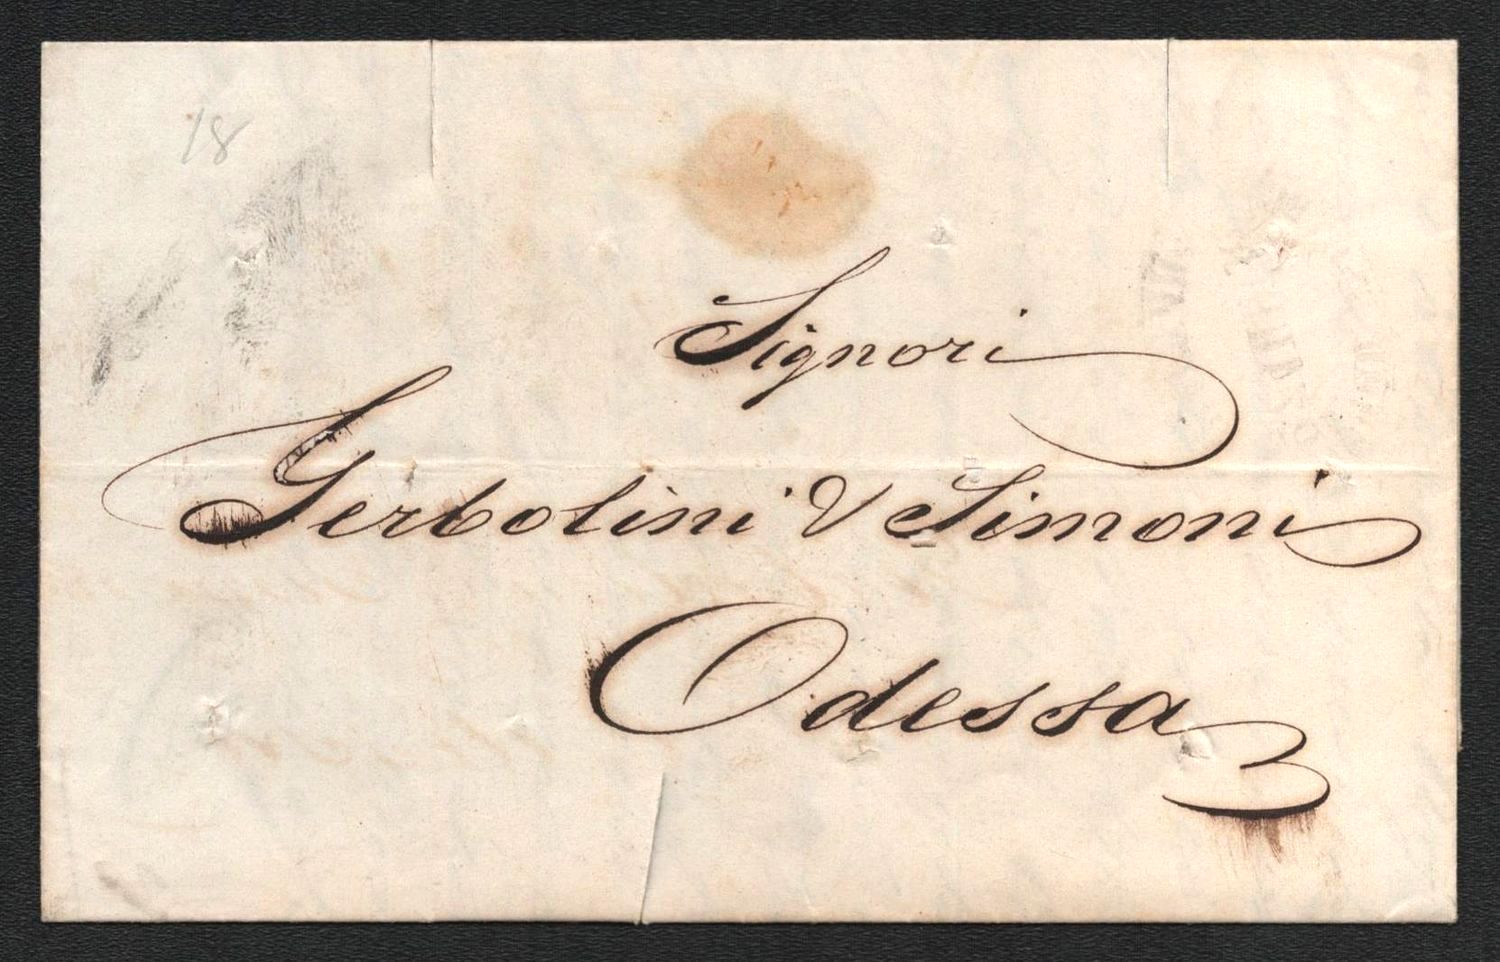 18
Signori
Gerbolini & Simoni
Odessa